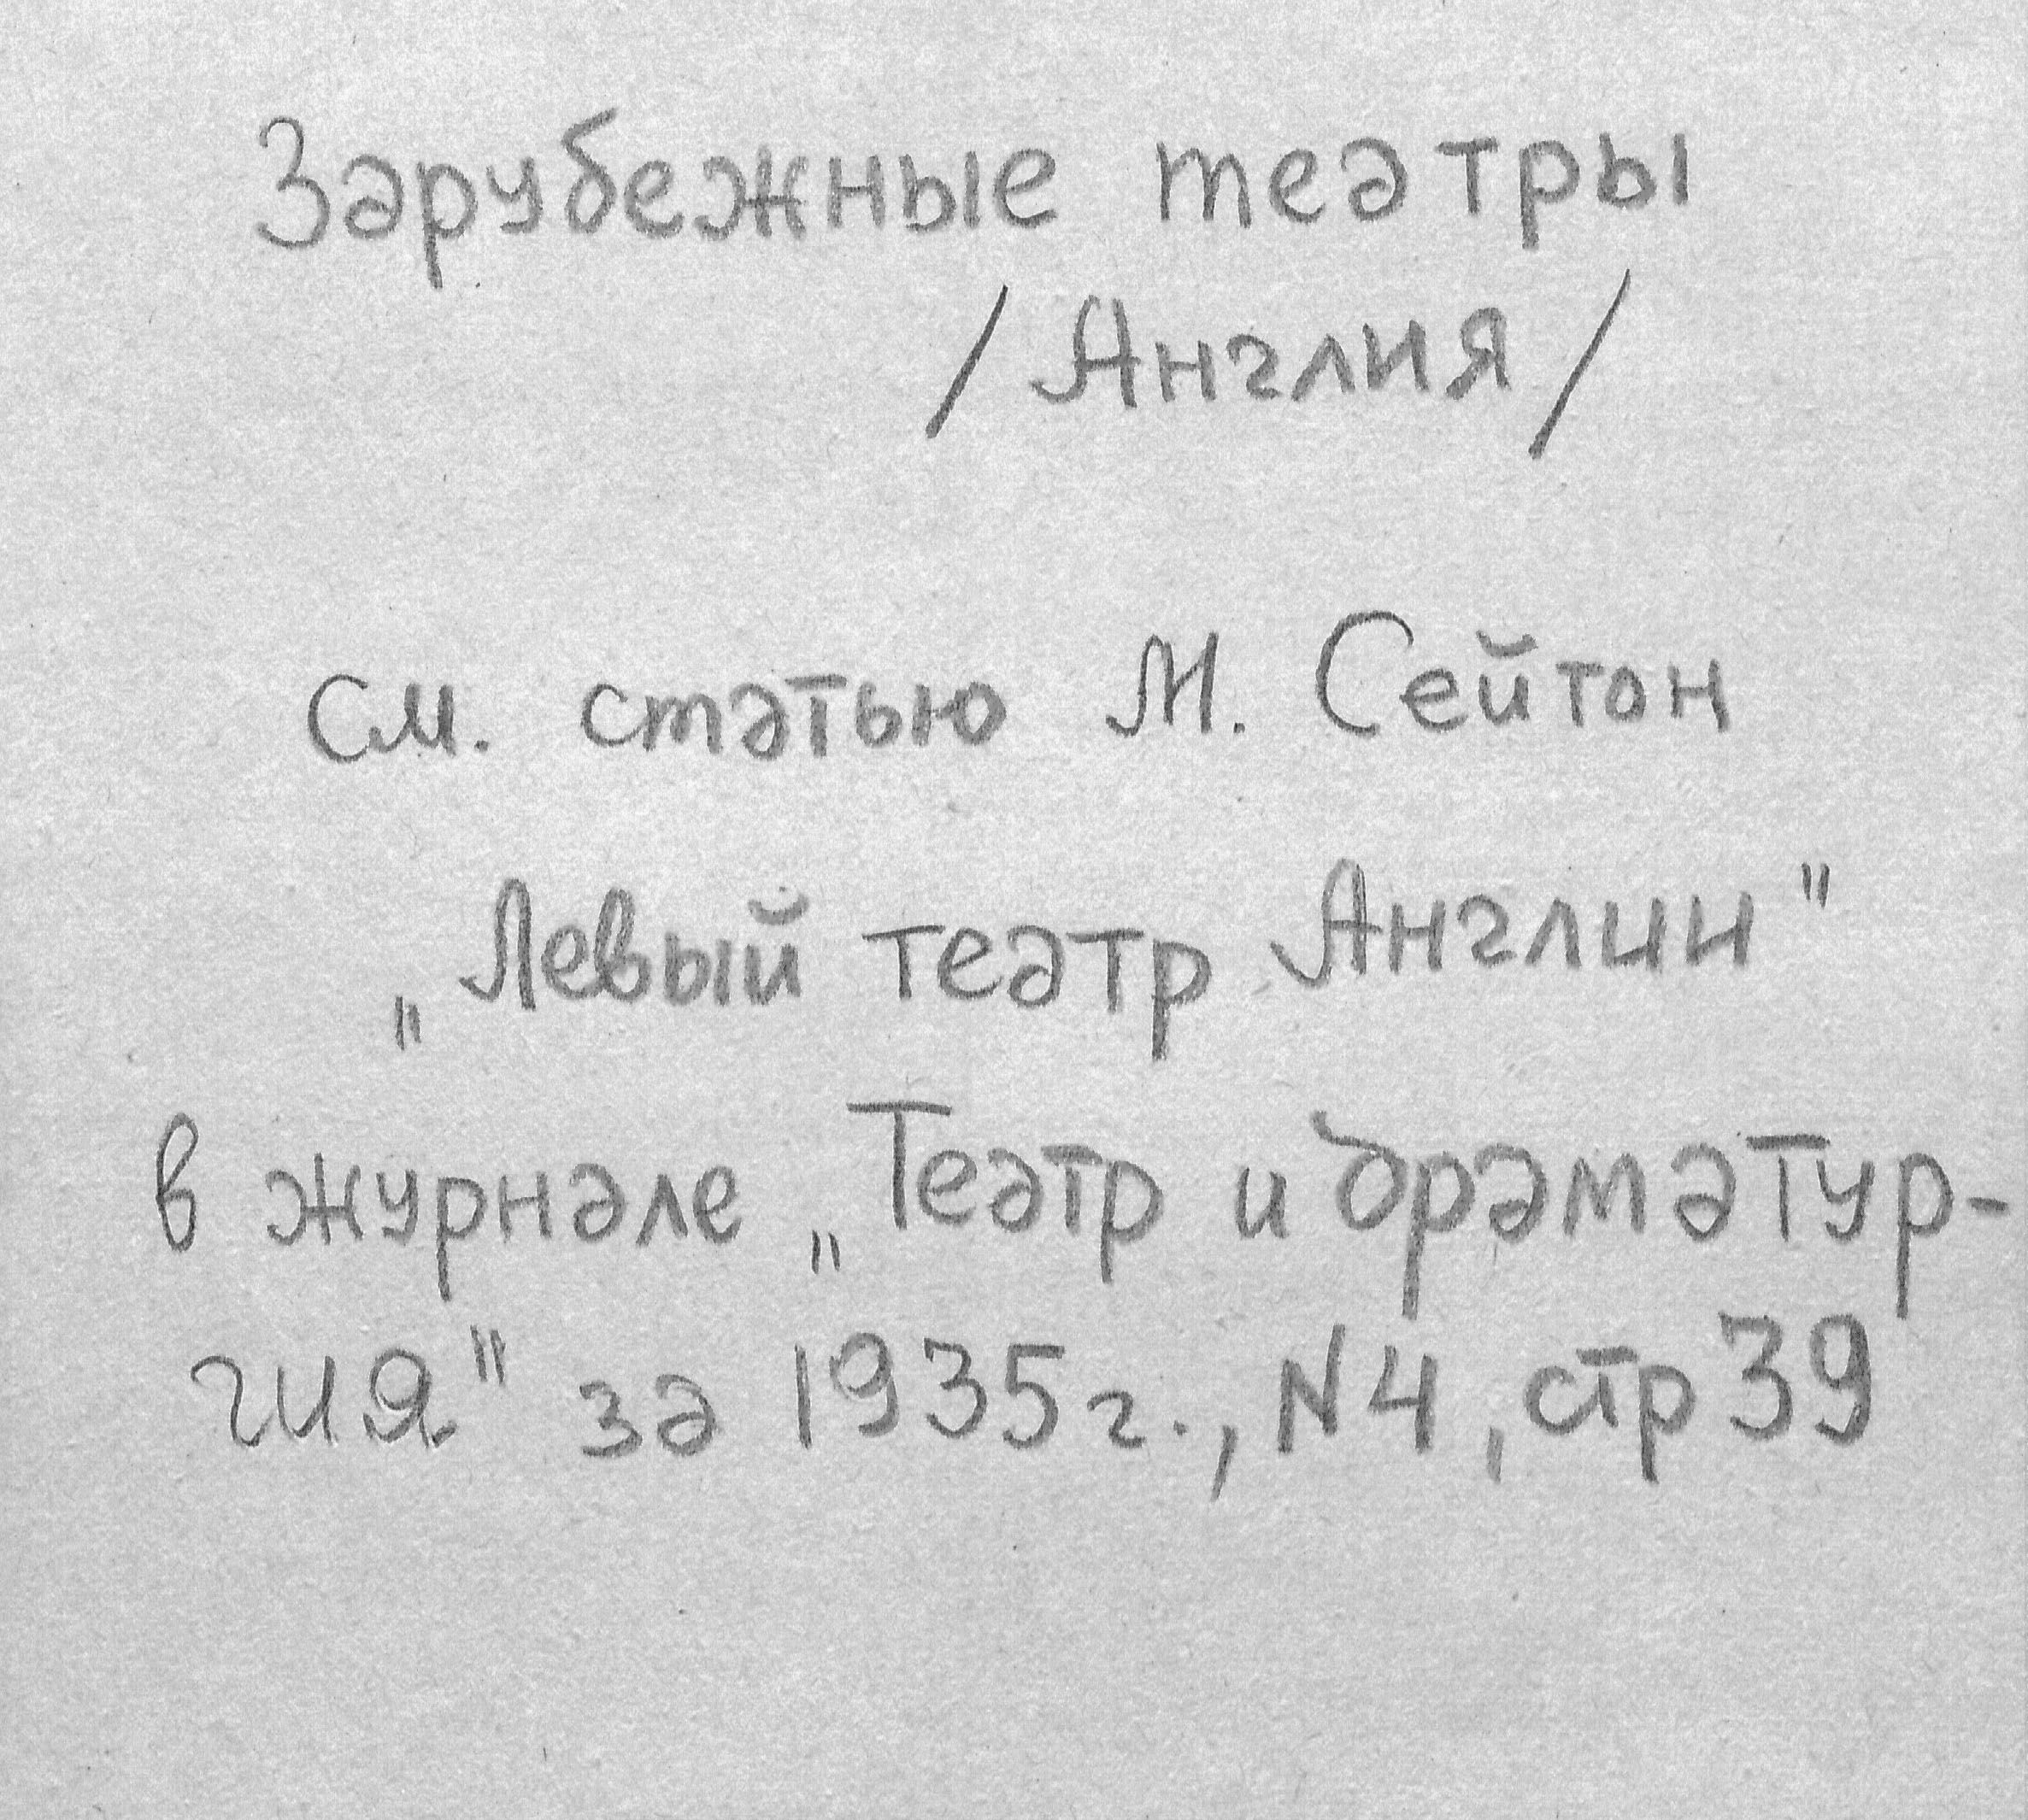 Зарубежные театры
/Англия/
см. статью М. Сейтон
„Левый театр Англии"
в журнале „Театр и драматур-
гия" за 1935г., N4, стр 39